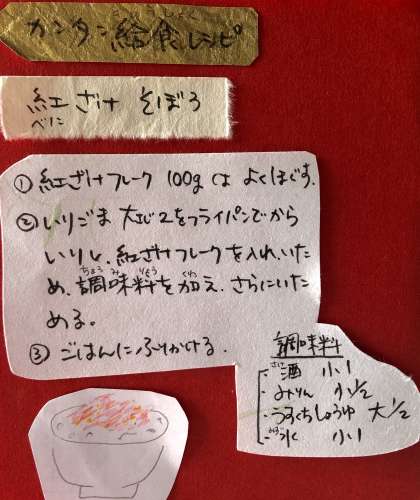 カンタン給食レシピ
紅ざけ そぼろ
べに
① 紅ざけフレーク 100gは よくほぐす。
② いりごま 大さじ2をフライパンでから
いりし、紅ざけフレークを入れ、いた
め、調味料を加え、さらにいた
める。
③ ごはんにふりかける。
調味料
・酒 小1
・みりん 小1/2
・うすくちしょうゆ 大1/2
・水 小1